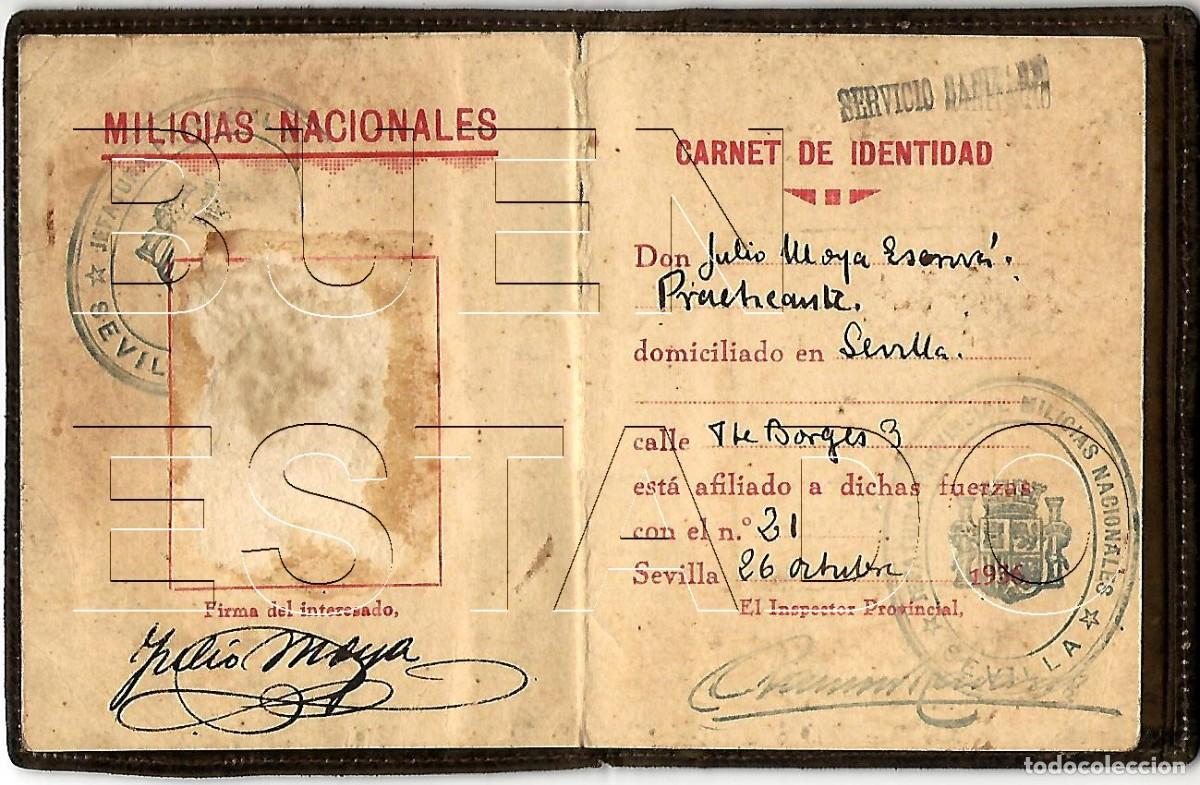 MILICIAS NACIONALES
SEVIL
Firma del interesado,
Julio Moya
SERVICIO SANITARIO
CARNET DE IDENTIDAD
Don Julio Moya
Practicante.
domiciliado en Sevilla.
calle Tte Borges 3
está afiliado a dichas fuerzas
con el n.° 21
Sevilla 26 octubre 1936
El Inspector Provincial,
MILICIAS NACIONALES
SEVILLA
BUEN
ESTADO
todocoleccion